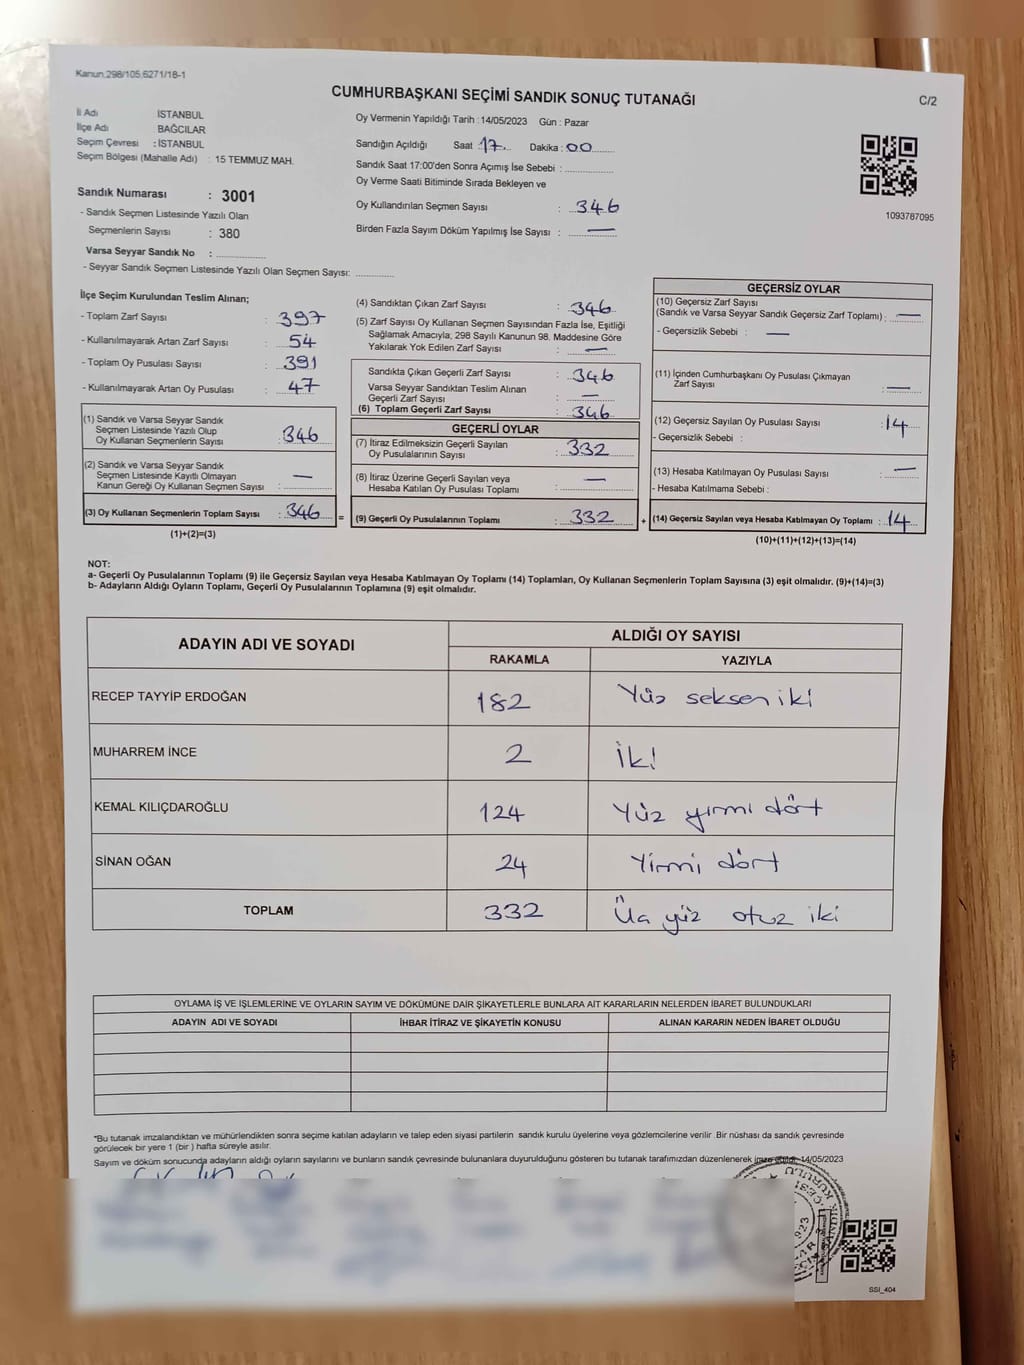 Kanun.298/105,6271/18-1
CUMHURBAŞKANI SEÇİMİ SANDIK SONUÇ TUTANAĞI
C/2
İl Adı İSTANBUL
İlçe Adı BAĞCILAR
Seçim Çevresi : İSTANBUL
Seçim Bölgesi (Mahalle Adı) : 15 TEMMUZ MAH.
Sandık Numarası : 3001
- Sandık Seçmen Listesinde Yazılı Olan
Seçmenlerin Sayısı : 380
Varsa Seyyar Sandık No :
- Seyyar Sandık Seçmen Listesinde Yazılı Olan Seçmen Sayısı:
Oy Vermenin Yapıldığı Tarih :14/05/2023 Gün : Pazar
Sandığın Açıldığı Saat : 17 Dakika : 00
Sandık Saat 17:00'den Sonra Açımış İse Sebebi :
Oy Verme Saati Bitiminde Sırada Bekleyen ve
Oy Kullandırılan Seçmen Sayısı : 346
Birden Fazla Sayım Döküm Yapılmış İse Sayısı : —
1093787095
İlçe Seçim Kurulundan Teslim Alınan;
- Toplam Zarf Sayısı : 397
- Kullanılmayarak Artan Zarf Sayısı : 54
- Toplam Oy Pusulası Sayısı : 391
- Kullanılmayarak Artan Oy Pusulası : 47
(1) Sandık ve Varsa Seyyar Sandık
Seçmen Listesinde Yazılı Olup
Oy Kullanan Seçmenlerin Sayısı : 346
(2) Sandık ve Varsa Seyyar Sandık
Seçmen Listesinde Kayıtlı Olmayan
Kanun Gereği Oy Kullanan Seçmen Sayısı : —
(3) Oy Kullanan Seçmenlerin Toplam Sayısı : 346 =
(1)+(2)=(3)
(4) Sandıktan Çıkan Zarf Sayısı : 346
(5) Zarf Sayısı Oy Kullanan Seçmen Sayısından Fazla İse, Eşitliği
Sağlamak Amacıyla, 298 Sayılı Kanunun 98. Maddesine Göre
Yakılarak Yok Edilen Zarf Sayısı : —
Sandıkta Çıkan Geçerli Zarf Sayısı : 346
Varsa Seyyar Sandıktan Teslim Alınan
Geçerli Zarf Sayısı : —
(6) Toplam Geçerli Zarf Sayısı : 346
GEÇERLİ OYLAR
(7) İtiraz Edilmeksizin Geçerli Sayılan
Oy Pusulalarının Sayısı : 332
(8) İtiraz Üzerine Geçerli Sayılan veya
Hesaba Katılan Oy Pusulası Toplamı : —
(9) Geçerli Oy Pusulalarının Toplamı : 332 +
GEÇERSİZ OYLAR
(10) Geçersiz Zarf Sayısı
(Sandık ve Varsa Seyyar Sandık Geçersiz Zarf Toplamı) : —
- Geçersizlik Sebebi : —
(11) İçinden Cumhurbaşkanı Oy Pusulası Çıkmayan
Zarf Sayısı : —
(12) Geçersiz Sayılan Oy Pusulası Sayısı : 14
- Geçersizlik Sebebi :
(13) Hesaba Katılmayan Oy Pusulası Sayısı : —
- Hesaba Katılmama Sebebi :
(14) Geçersiz Sayılan veya Hesaba Katılmayan Oy Toplamı : 14
(10)+(11)+(12)+(13)=(14)
NOT:
a- Geçerli Oy Pusulalarının Toplamı (9) ile Geçersiz Sayılan veya Hesaba Katılmayan Oy Toplamı (14) Toplamları, Oy Kullanan Seçmenlerin Toplam Sayısına (3) eşit olmalıdır. (9)+(14)=(3)
b- Adayların Aldığı Oyların Toplamı, Geçerli Oy Pusulalarının Toplamına (9) eşit olmalıdır.
ADAYIN ADI VE SOYADI ALDIĞI OY SAYISI
RAKAMLA YAZIYLA
RECEP TAYYİP ERDOĞAN 182 Yüz seksen iki
MUHARREM İNCE 2 İki
KEMAL KILIÇDAROĞLU 124 Yüz yirmi dört
SİNAN OĞAN 24 Yirmi dört
TOPLAM 332 Üç yüz otuz iki
OYLAMA İŞ VE İŞLEMLERİNE VE OYLARIN SAYIM VE DÖKÜMÜNE DAİR ŞİKAYETLERLE BUNLARA AİT KARARLARIN NELERDEN İBARET BULUNDUKLARI
ADAYIN ADI VE SOYADI İHBAR İTİRAZ VE ŞİKAYETİN KONUSU ALINAN KARARIN NEDEN İBARET OLDUĞU
*Bu tutanak imzalandıktan ve mühürlendikten sonra seçime katılan adayların ve talep eden siyasi partilerin sandık kurulu üyelerine veya gözlemcilerine verilir. Bir nüshası da sandık çevresinde
görülecek bir yere 1 (bir) hafta süreyle asılır.
Sayım ve döküm sonucunda adayların aldığı oyların sayılarını ve bunların sandık çevresinde bulunanlara duyurulduğunu gösteren bu tutanak tarafımızdan düzenlenerek imza edildi. 14/05/2023
SSI_404